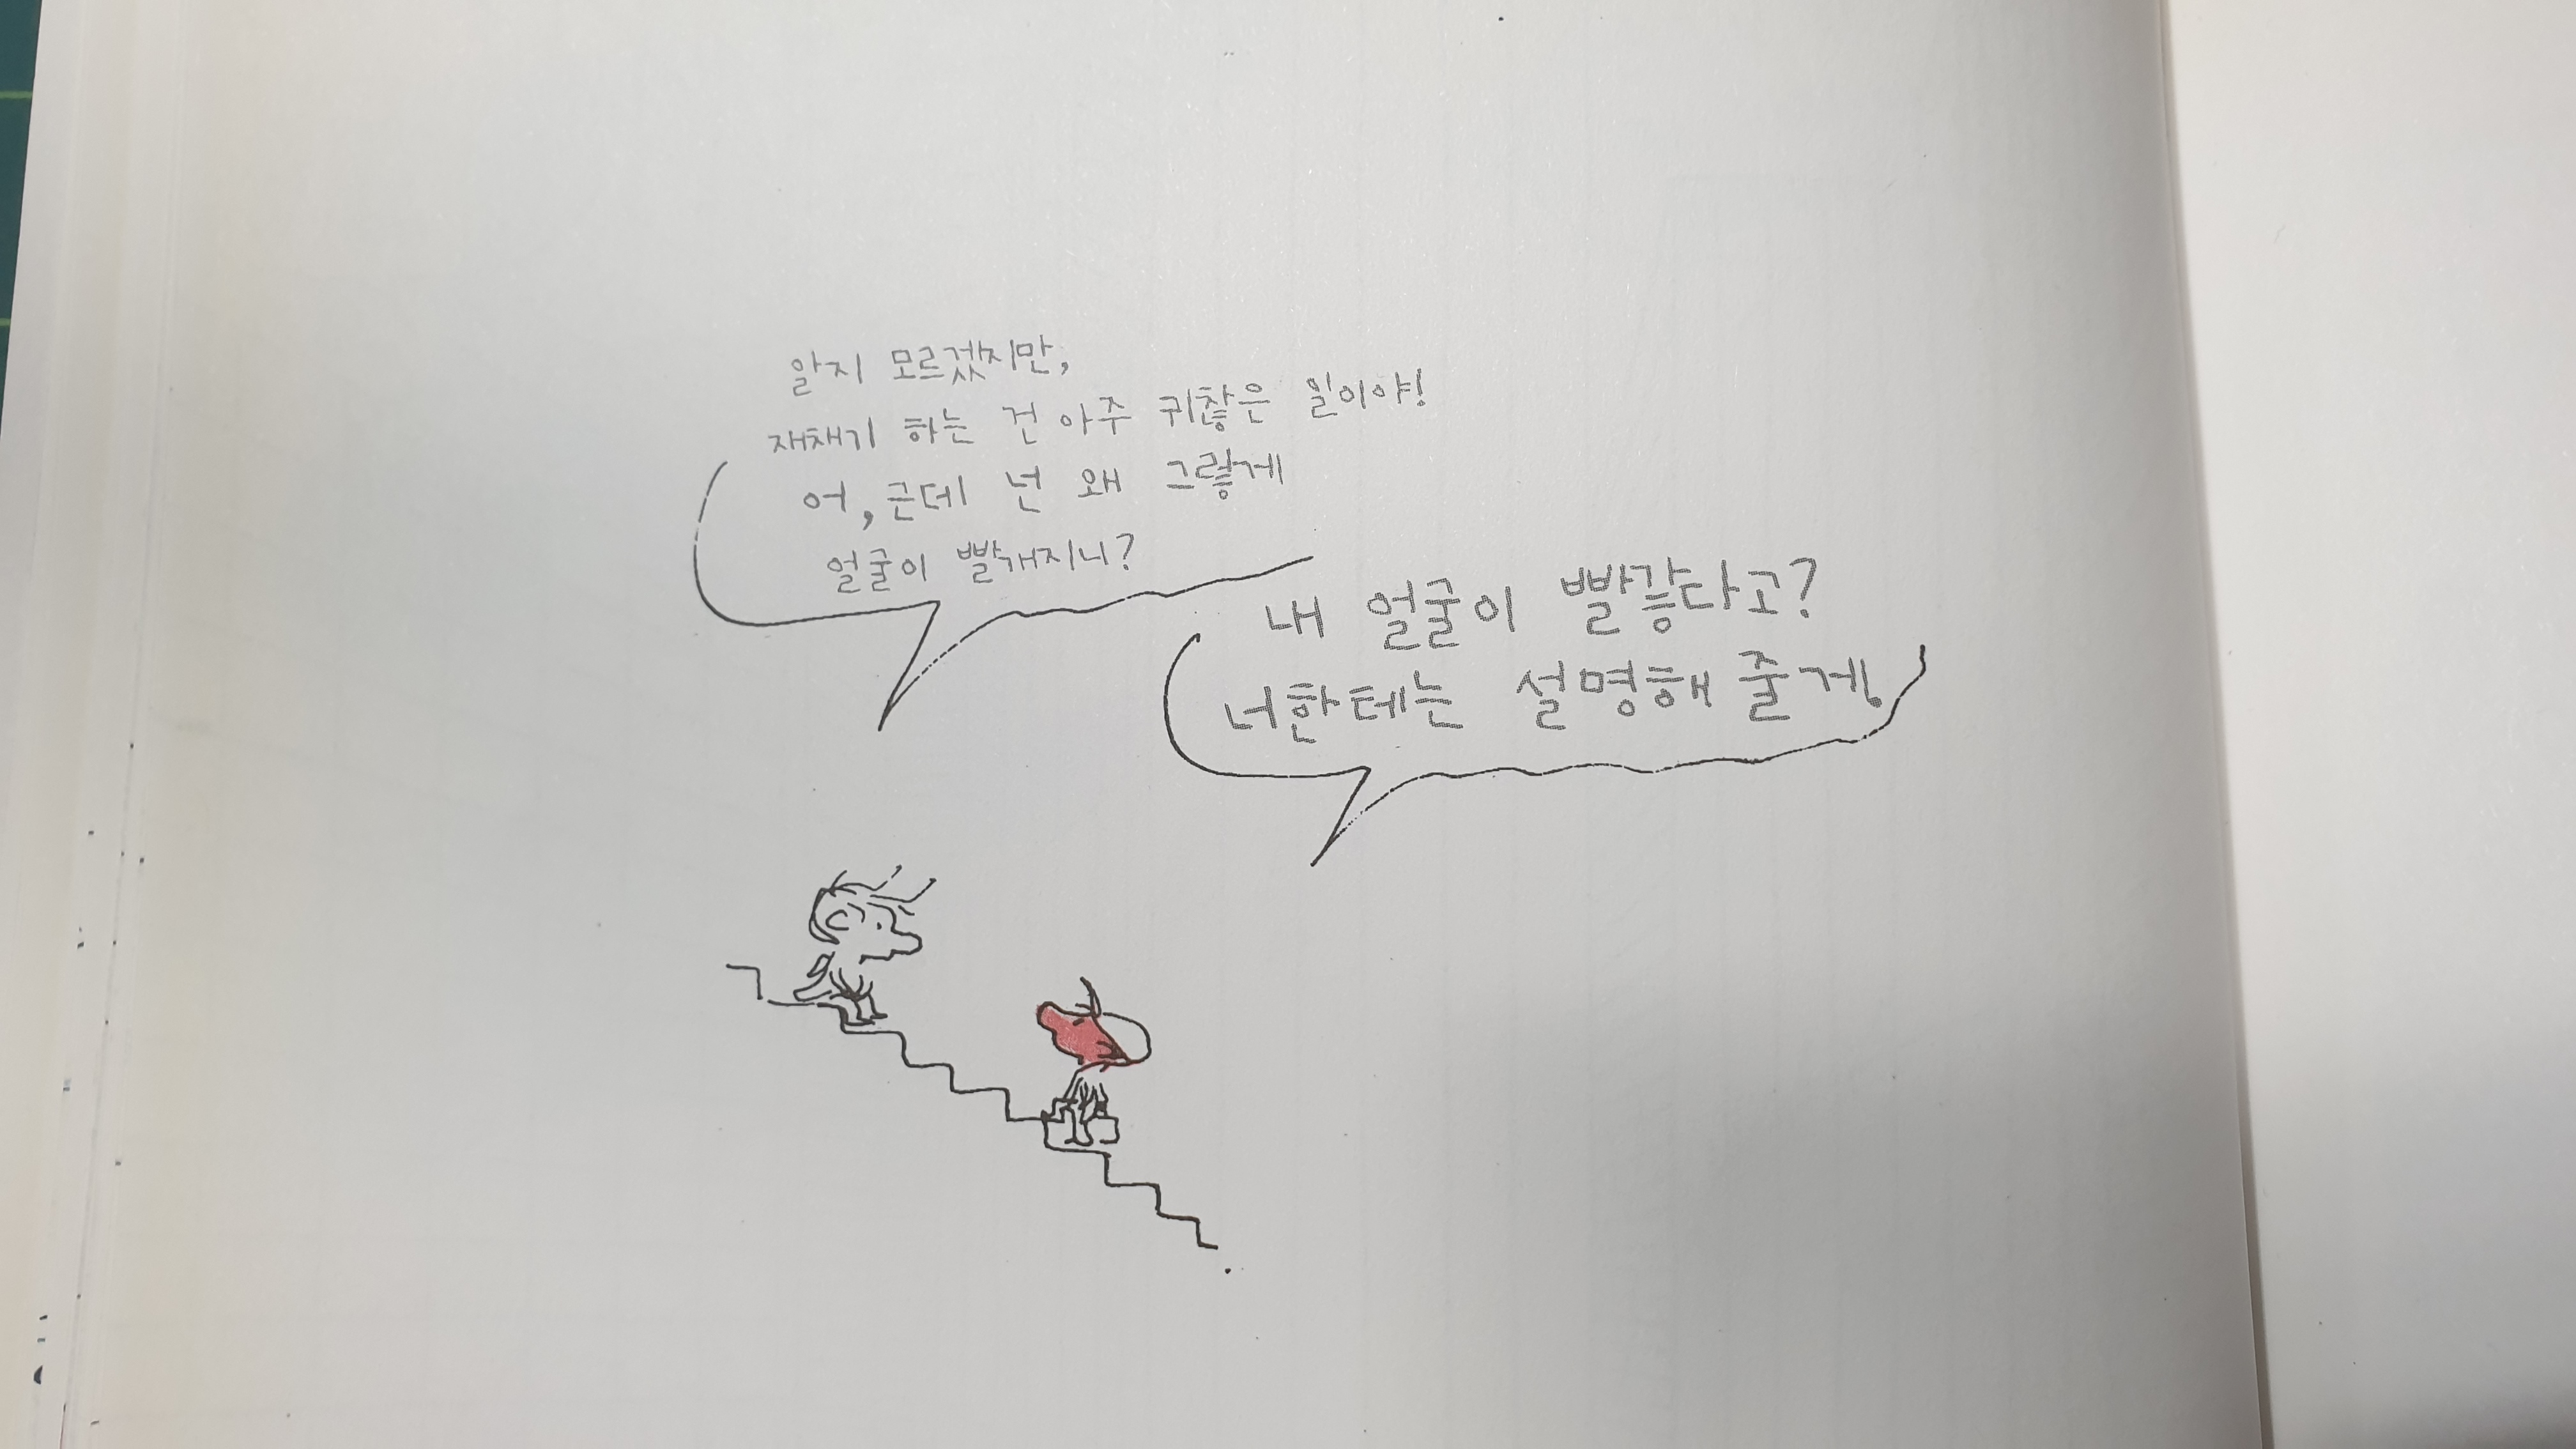 알지 모르겠지만,
재채기 하는 건 아주 귀찮은 일이야!
어, 근데 넌 왜 그렇게
얼굴이 빨개지니?
내 얼굴이 빨갛다고?
너한테는 설명해 줄게.